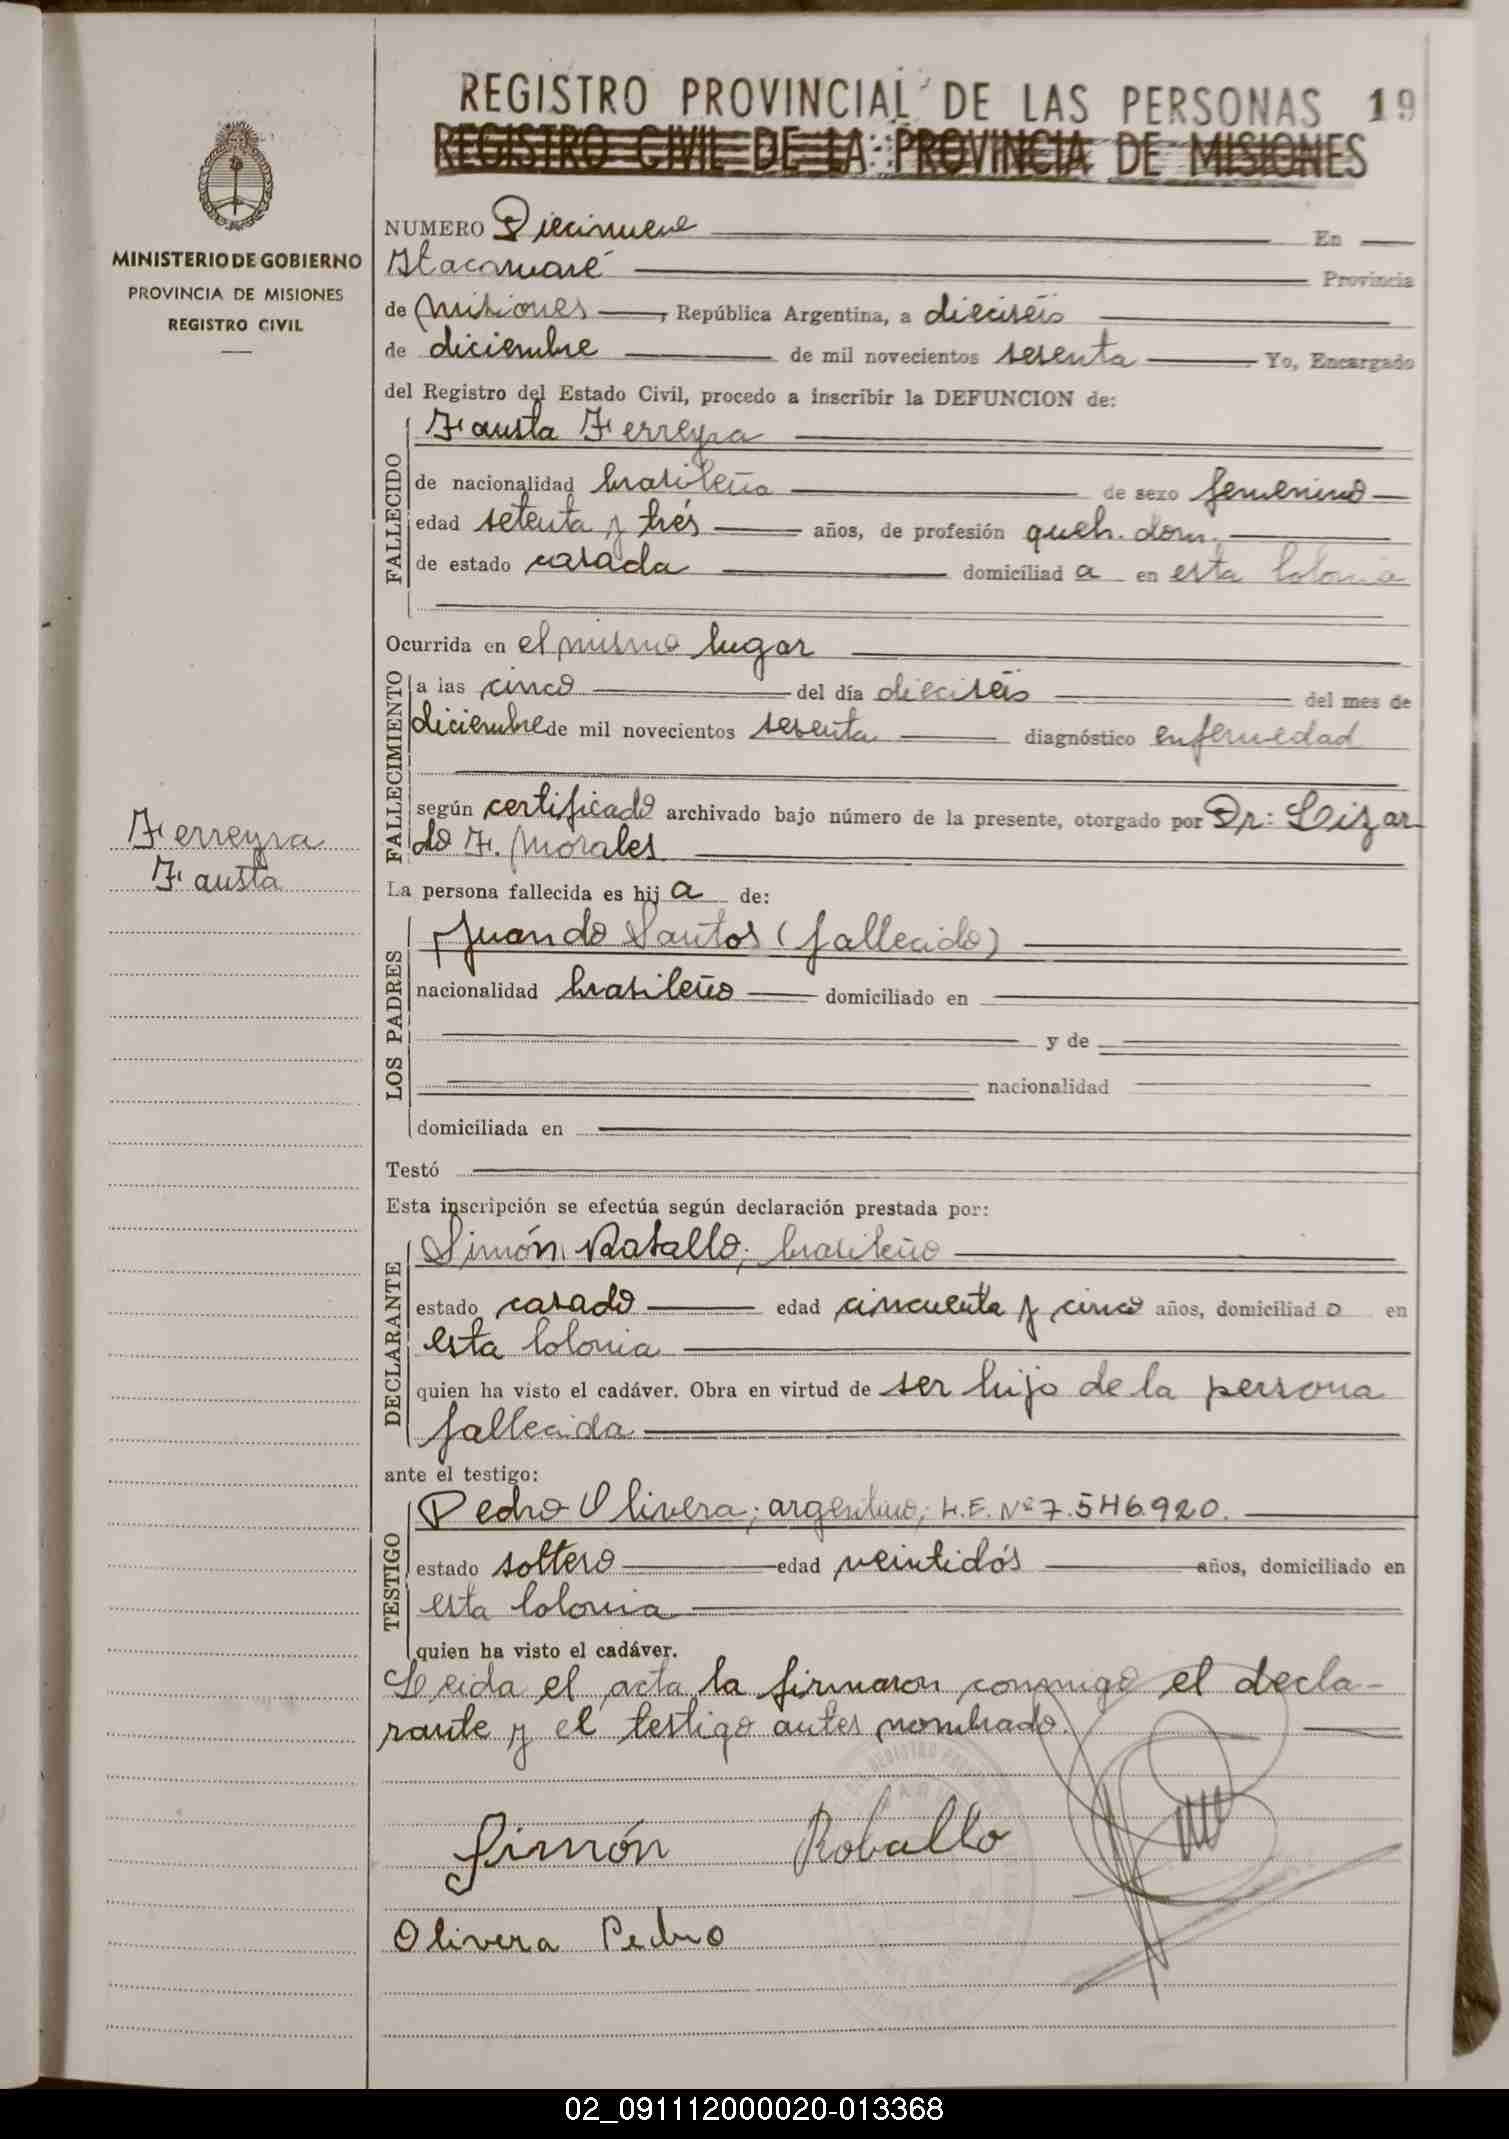 REGISTRO PROVINCIAL DE LAS PERSONAS 19
REGISTRO CIVIL DE LA PROVINCIA DE MISIONES
MINISTERIO DE GOBIERNO
PROVINCIA DE MISIONES
REGISTRO CIVIL
NUMERO Diecinueve En
Itacaruaré Provincia
de Misiones, República Argentina, a dieciséis
de diciembre de mil novecientos sesenta Yo, Encargado
del Registro del Estado Civil, procedo a inscribir la DEFUNCION de:
FALLECIDO
Fausta Ferreyra
de nacionalidad brasileña de sexo femenino
edad setenta y trés años, de profesión queh. dom.
de estado casada domiciliad a en esta Colonia
Ocurrida en el mismo lugar
FALLECIMIENTO
a las cinco del día dieciséis del mes de
diciembre de mil novecientos sesenta diagnóstico enfermedad
según certificado archivado bajo número de la presente, otorgado por Dr: Lizar
do F. Morales
Ferreyra
Fausta
La persona fallecida es hij a de:
LOS PADRES
Juan do Santos (fallecido)
nacionalidad brasileño domiciliado en
y de
nacionalidad
domiciliada en
Testó
Esta inscripción se efectúa según declaración prestada por:
DECLARANTE
Simón Raballo; brasileño
estado casado edad cincuenta y cinco años, domiciliad o en
esta Colonia
quien ha visto el cadáver. Obra en virtud de ser hijo de la persona
fallecida
ante el testigo:
TESTIGO
Pedro Olivera; argentino; L.E. Nº 7.546.920.
estado soltero edad veintidós años, domiciliado en
esta Colonia
quien ha visto el cadáver.
Leida el acta la firmaron conmigo el decla-
rante y el testigo antes nombrado.
Simón Roballo
Olivera Pedro
02_091112000020-013368